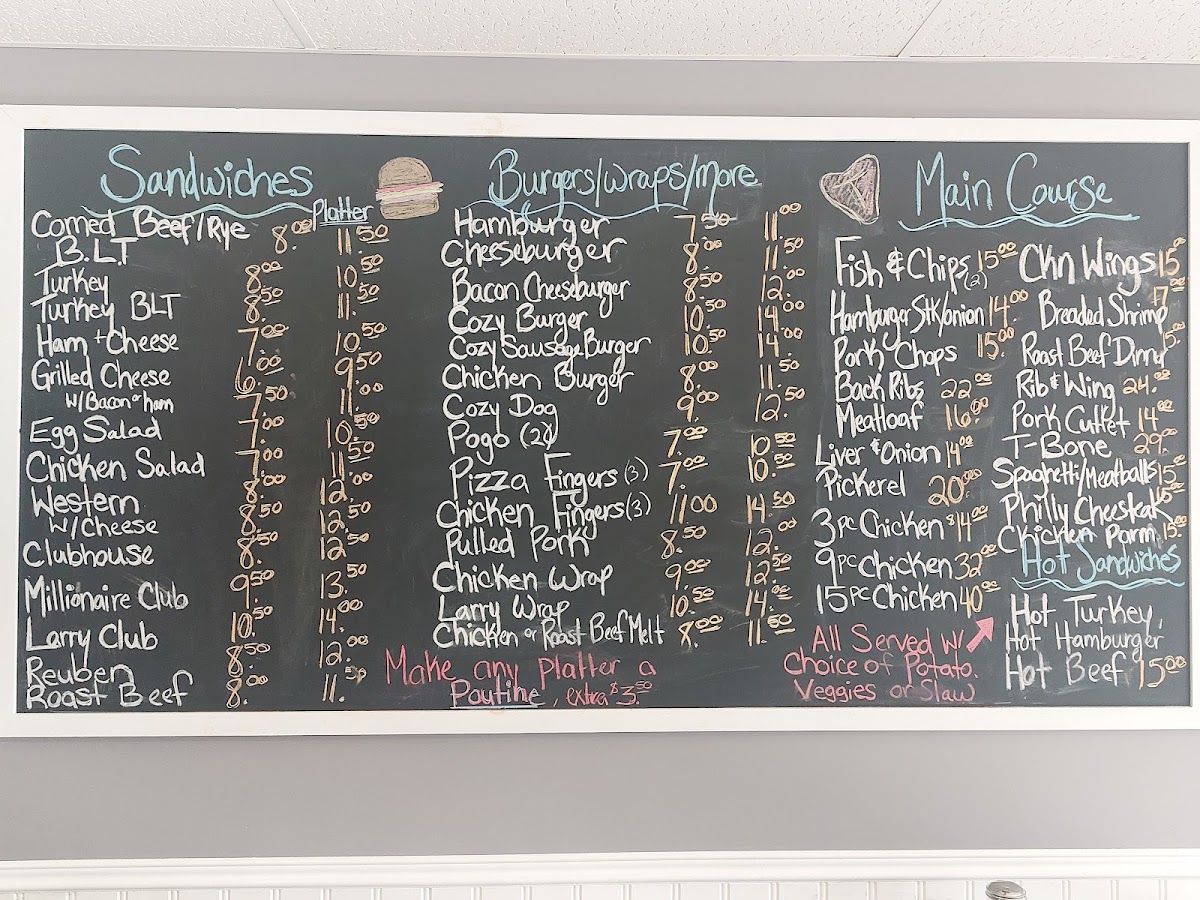 Sandwiches
Platter
Corned Beef/Rye 8.00 11.50
B.L.T
Turkey 8.00 10.50
Turkey BLT 8.50 11.50
Ham + Cheese 7.00 10.50
Grilled Cheese 6.00 9.50
w/Bacon or ham 7.50 11.00
Egg Salad 7.00 10.50
Chicken Salad 7.00 11.50
Western 8.00 12.00
w/Cheese 8.50 12.50
Clubhouse 8.50 12.50
Millionaire Club 9.50 13.50
Larry Club 10.50 14.00
Reuben 8.50 12.00
Roast Beef 8.00 11.50
Burgers/wraps/more
Hamburger 7.50 11.00
Cheeseburger 8.00 11.50
Bacon Cheeseburger 8.50 12.00
Cozy Burger 10.50 14.00
Cozy Sausage Burger 10.50 14.00
Chicken Burger 8.00 11.50
Cozy Dog 9.00 12.50
Pogo (2) 7.00 10.50
Pizza Fingers (3) 7.00 10.50
Chicken Fingers (3) 11.00 14.50
Pulled Pork 8.50 12.00
Chicken Wrap 9.00 12.50
Larry Wrap 10.50 14.00
Chicken or Roast Beef Melt 8.00 11.50
Make any platter a
Poutine, extra $3.50
Main Course
Fish & Chips (2) 15.00
Hamburger Stk/onion 14.00
Pork Chops 15.00
Back Ribs 22.00
Meatloaf 16.00
Liver & Onion 14.00
Pickerel 20.00
3pc Chicken $14.00
9pc Chicken 32.00
15pc Chicken 40.00
All Served w/
choice of Potato.
Veggies or Slaw
Ckn Wings 15.00
Breaded Shrimp 17.00
Roast Beef Dinnr 15.00
Rib & Wing 24.00
Pork Cutlet 14.00
T-Bone 29.00
Spaghetti/Meatballs 15.00
Philly Cheesteak 15.00
Chicken Parm 15.00
Hot Sandwiches
Hot Turkey,
Hot Hamburger
Hot Beef 15.00